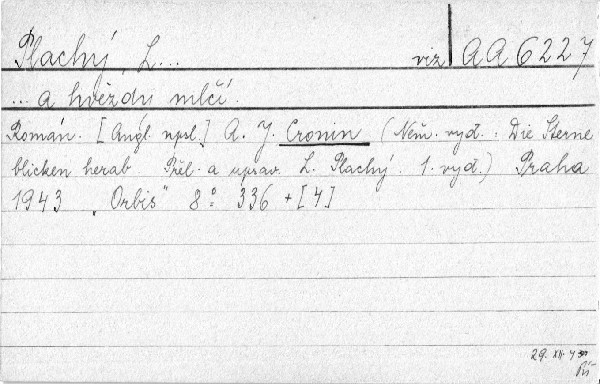 Plachý, L... viz AA 6227
... a hvězdy mlčí.
Román. [Angl. npsl.] A. J. Cronin (Něm. vyd.: Die Sterne
blicken herab. Přel. a uprav. L. Plachý. 1. vyd.) Praha
1943 „Orbis" 8° 336 + [4]
29. XII. 43